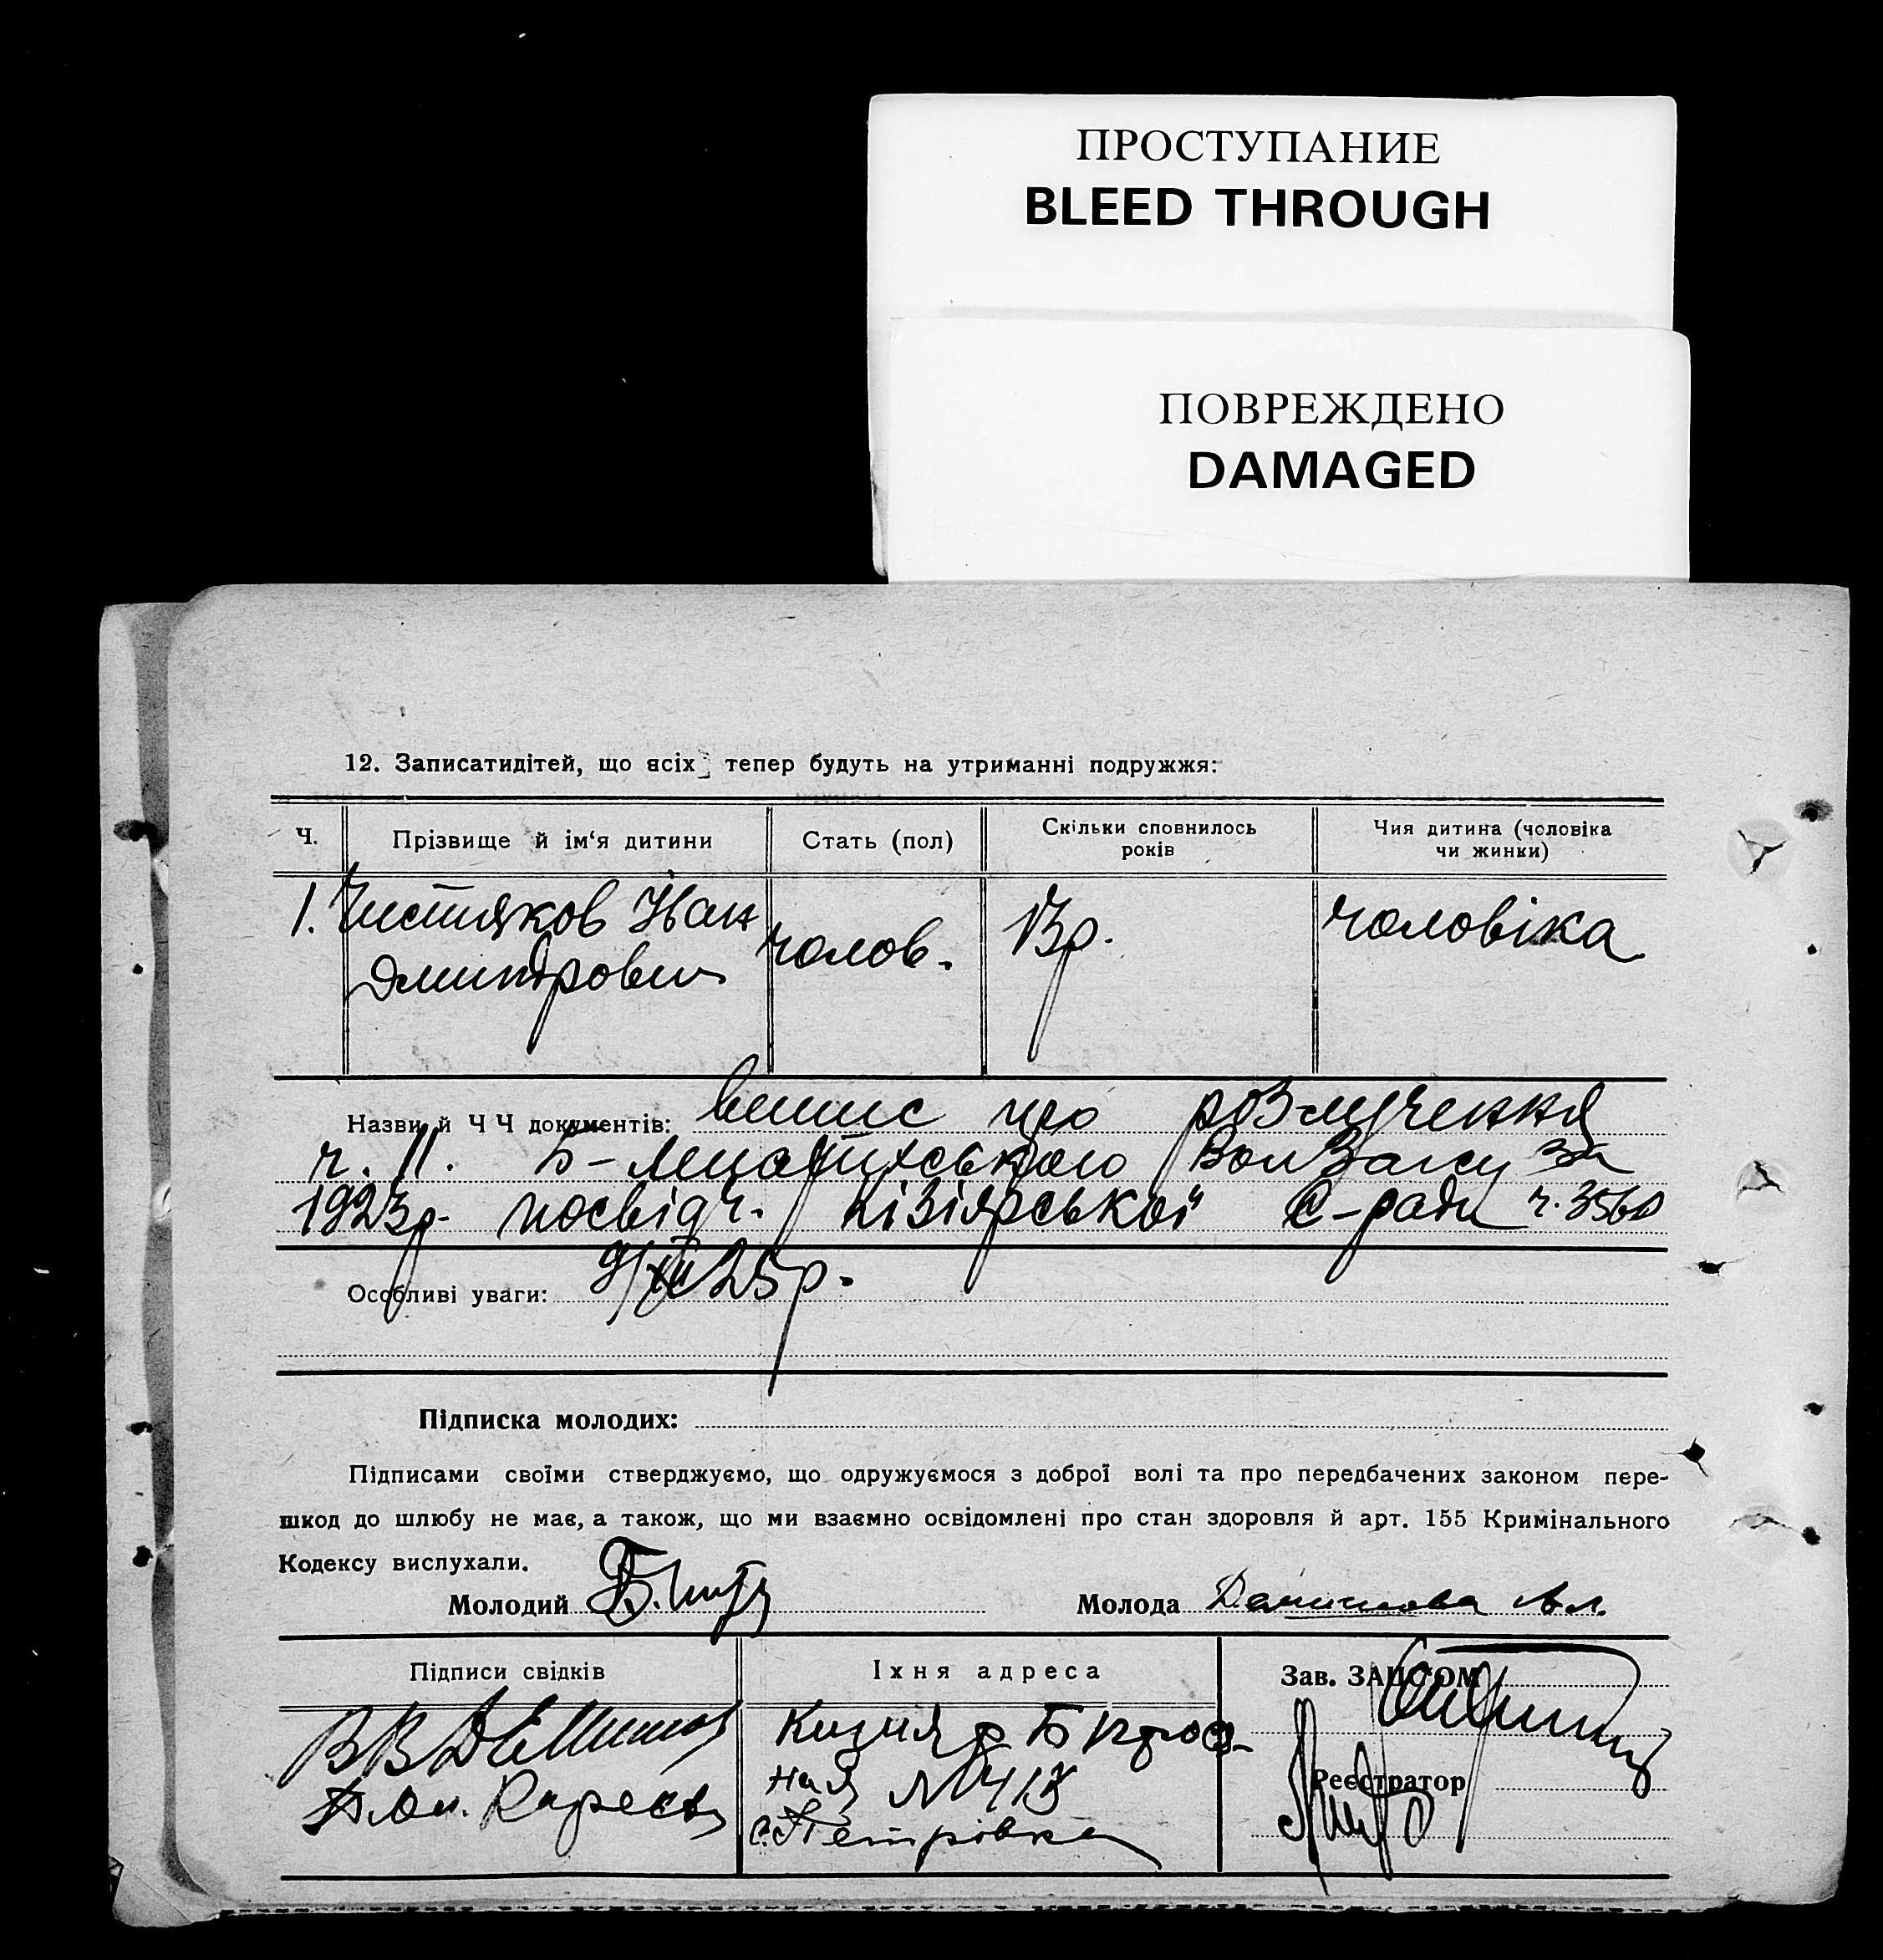 ПРОСТУПАНИЕ
BLEED THROUGH
ПОВРЕЖДЕНО
DAMAGED
12. Записатидітей, що всіх тепер будуть на утриманні подружжя:
Ч. Прізвище й ім‘я дитини Стать (пол) Скільки сповнилось років Чия дитина (чоловіка чи жинки)
1. Чистяков Іван чолов. 13р. чоловіка
Дмитрович
Назви й Ч Ч документів: випис про розлучення
ч. 11. Б- за
1923р. посвідч. Кізіярської С-ради ч. 3560
Особливі уваги: 9/XII 25р.
Підписка молодих:
Підписами своїми стверджуємо, що одружуємося з доброї волі та про передбачених законом пере-
шкод до шлюбу не має, а також, що ми взаємно освідомлені про стан здоровля й арт. 155 Кримінального
Кодексу вислухали.
Молодий Молода
Підписи свідків Їхня адреса Зав. ЗАЦСОМ
Кизияр
ная №
Реєстратор
с. Петрівка